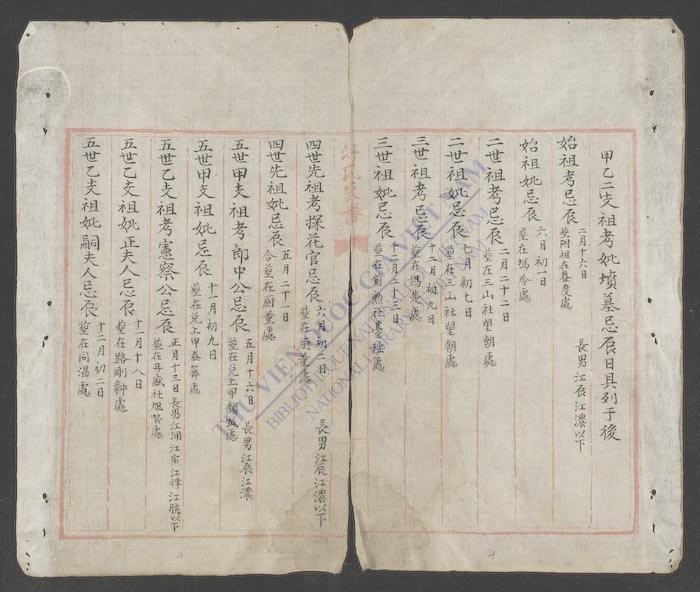 甲乙二支祖考妣墳墓忌辰日具列于後
長男江辰江濃以下
始祖考忌辰 二月十六日 塟附祖在
處
始祖妣忌辰 六月初一日 塟在塸
處
二世祖考忌辰 二月二十二日 塟在三山社望朝處
二世祖妣忌辰 七月初七日 塟在三山社望朝處
三世祖考忌辰 十二月初九日 塟在
處
三世祖妣忌辰 十二月二十三日 塟在
社
處
四世先祖考探花官忌辰 六月初
日 塟在
處 長男江辰江濃以下
四世先祖妣忌辰 五月二十一日 合塟在
處
五世甲支祖考郎中公忌辰 五月十六日 塟在兑上甲
處 長男江辰江濃
五世甲支祖妣忌辰 十一月初九日 塟在兑上甲
處
五世乙支祖考憲察公忌辰 正月十三日 塟在
社
處 長男江浦江寅江
江
以下
五世乙支祖妣正夫人忌辰 十一月十八日 塟在路剛
處
五世乙支祖妣嗣夫人忌辰 十二月初二日 塟在同
處
THƯ VIỆN QUỐC GIA VIỆT NAM
BIBLIOTHÈQUE NATIONALE DU VIETNAM
NATIONAL LIBRARY OF VIETNAM